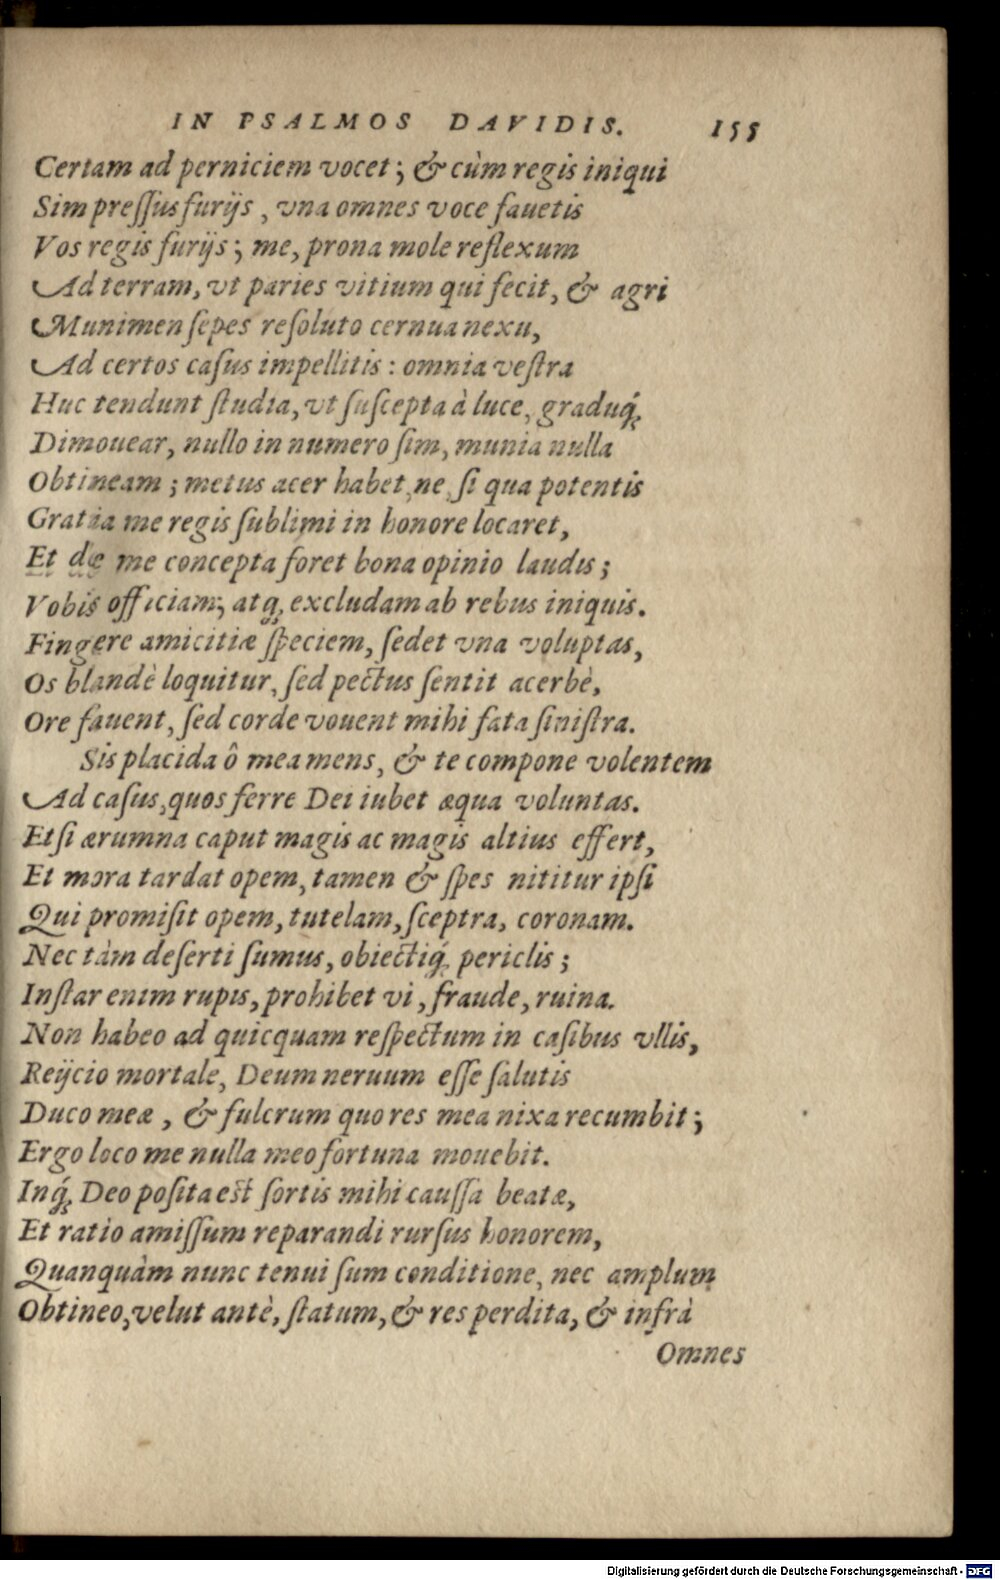 IN PSALMOS DAVIDIS. 155
Certam ad perniciem vocet; & cùm regis iniqui
Sim preſſus furijs, vna omnes voce fauetis
Vos regis furijs; me, prona mole reflexum
Ad terram, vt paries vitium qui fecit, & agri
Munimen ſepes reſoluto cernua nexu,
Ad certos caſus impellitis: omnia veſtra
Huc tendunt ſtudia, vt ſuſcepta à luce, graduq́;
Dimouear, nullo in numero ſim, munia nulla
Obtineam; metus acer habet, ne, ſi qua potentis
Gratia me regis ſublimi in honore locaret,
Et de me concepta foret bona opinio laudis;
Vobis officiam; atq; excludam ab rebus iniquis.
Fingere amicitiæ ſpeciem, ſedet vna voluptas,
Os blandè loquitur, ſed pectus ſentit acerbè,
Ore fauent, ſed corde vouent mihi fata ſiniſtra.
Sis placida ô mea mens, & te compone volentem
Ad caſus, quos ferre Dei iubet æqua voluntas.
Etſi ærumna caput magis ac magis altius effert,
Et mora tardat opem, tamen & ſpes nititur ipſi
Qui promiſit opem, tutelam, ſceptra, coronam.
Nec tàm deſerti ſumus, obiectiq́; periclis;
Inſtar enim rupis, prohibet vi, fraude, ruina.
Non habeo ad quicquam reſpectum in caſibus vllis,
Reijcio mortale, Deum neruum eſſe ſalutis
Duco meæ, & fulcrum quo res mea nixa recumbit;
Ergo loco me nulla meo fortuna mouebit.
Inq́; Deo poſita eſt ſortis mihi cauſſa beatæ,
Et ratio amiſſum reparandi rurſus honorem,
Quanquàm nunc tenui ſum conditione, nec amplum
Obtineo, velut antè, ſtatum, & res perdita, & infrà
Omnes
Digitalisierung gefördert durch die Deutsche Forschungsgemeinschaft - DFG